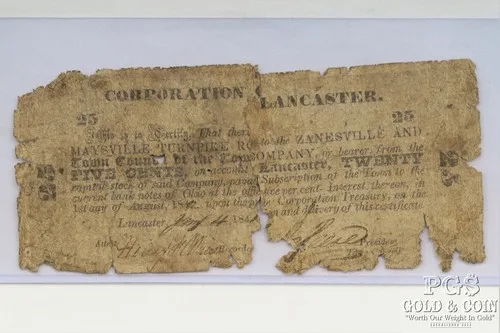 CORPORATION LANCASTER.
25 25
This is to Certify, That there
to the ZANESVILLE AND
MAYSVILLE TURNPIKE RO COMPANY or bearer, from the
Town Council of the Town Lancaster, TWENTY
FIVE CENTS, on account Subscription of the Town to the
capital stock of said Company, paya at the office
current bank notes of Ohio per cent. Interest thereon, in
1st day of August, upon the Corporation Treasury, on the
and delivery of this certificate
Lancaster
Attest
Recorder
25
25
PGS
GOLD & COIN
"Worth Our Weight In Gold"